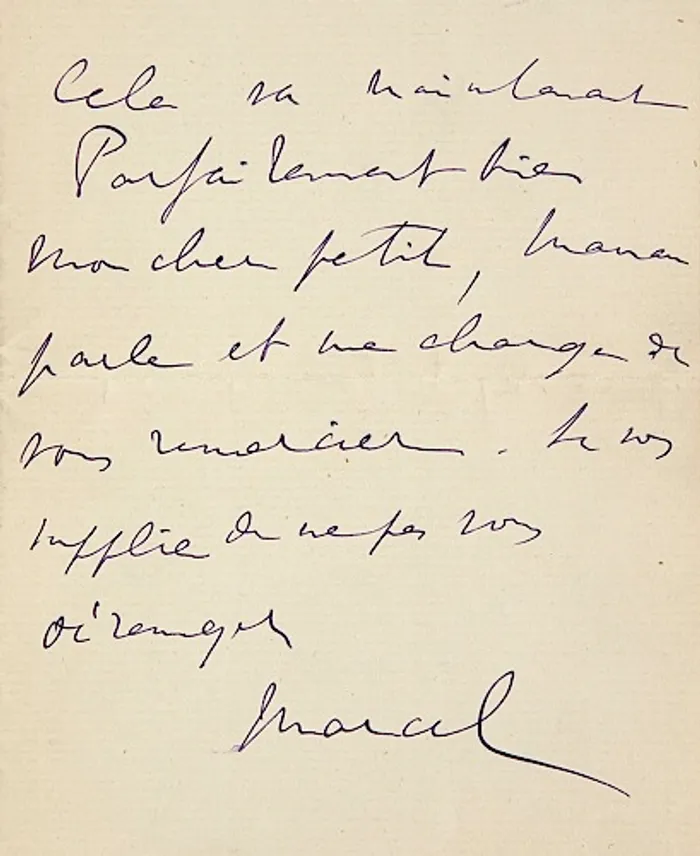 Cela va maintenant
Parfaitement bien
Mon cher petit, Maman
parle et me charge de
vous remercier. Je vous
supplie de ne pas vous
déranger
Marcel